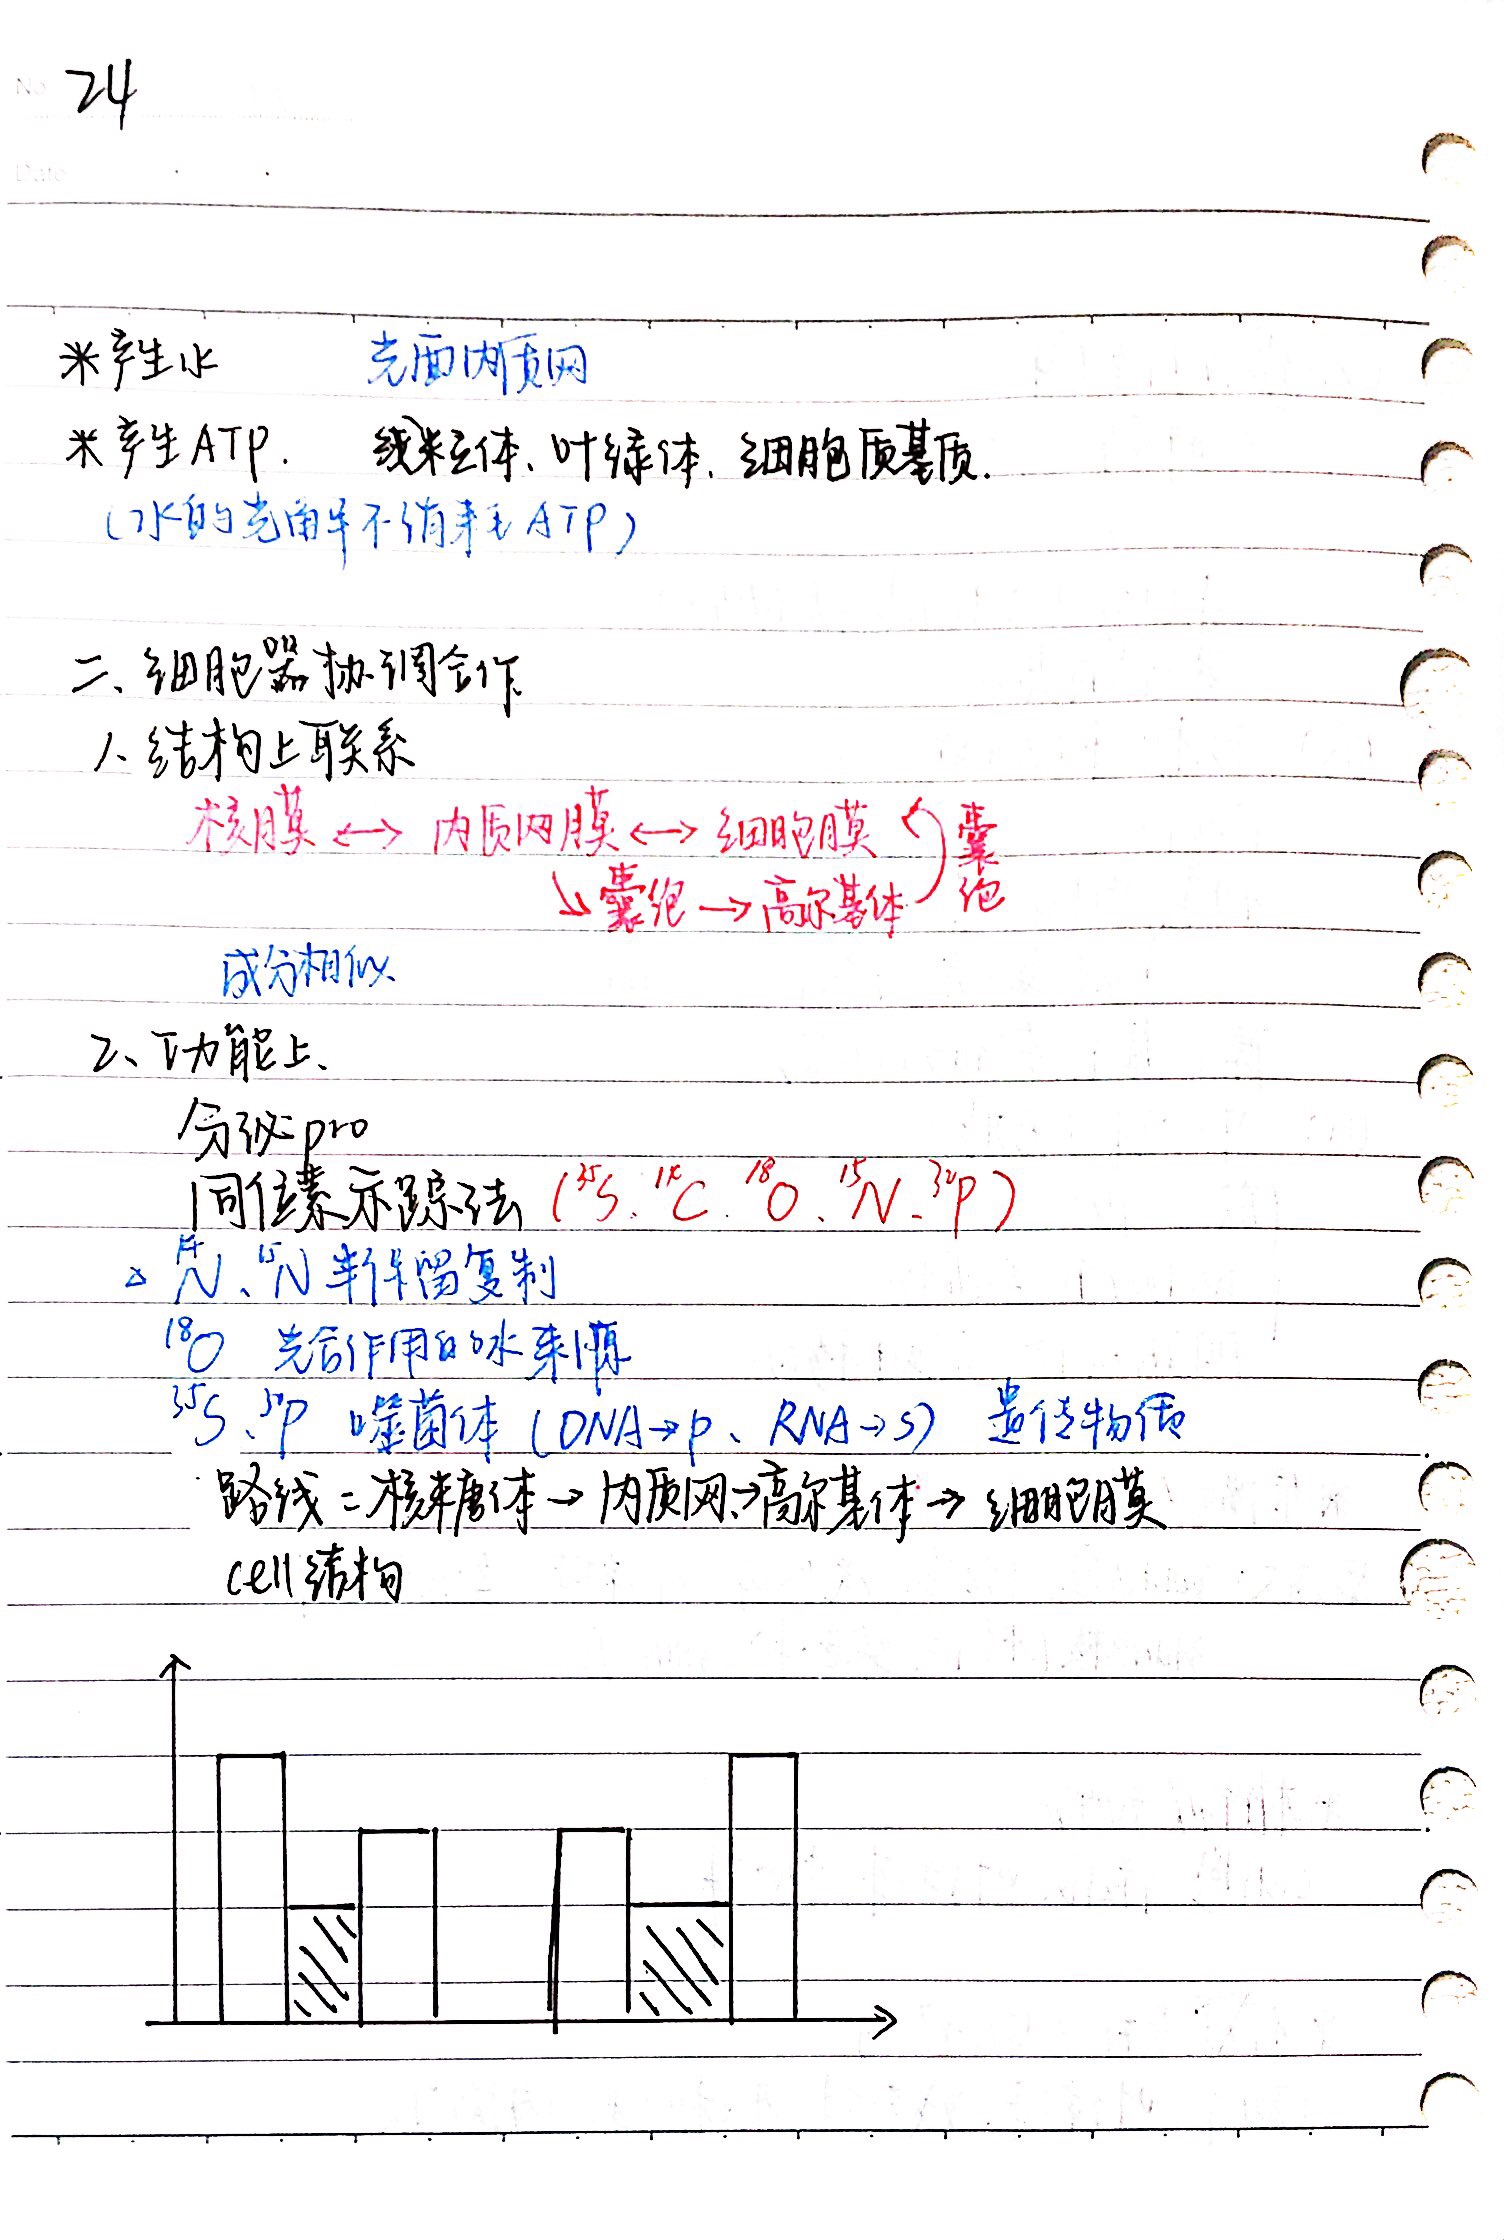 No 24
Date
※产生水 光面内质网
※产生ATP. 线粒体、叶绿体、细胞质基质.
(水的光解不消耗ATP)
二、细胞器协调合作
1、结构上联系
核膜 ←→ 内质网膜 ←→ 细胞膜 囊泡
↘ 囊泡 → 高尔基体
成分相似
2、功能上、
分泌pro
同位素示踪法 (³⁵S、¹⁴C、¹⁸O、¹⁵N、³²P)
△ ¹⁴N、¹⁵N 半保留复制
¹⁸O 光合作用的水来源
³⁵S、³²P 噬菌体 (DNA→P、RNA→S) 遗传物质
路线：核糖体→内质网→高尔基体→细胞膜
cell结构